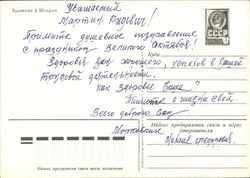 Художник А. Шмидт
Уважаемый
Мартин Рудович!
Примите душевное поздравление
с праздником Великого октября!
Куда
Здоровья Вам хорошего, успехов в Вашей
трудовой деятельности.
Как здоровье Ваше?
Пишите о жизни своей
Всего доброго Вам
СССР
Индекс предприятия связи и адрес
отправителя
Михаил
Индекс предприятия связи места назначения